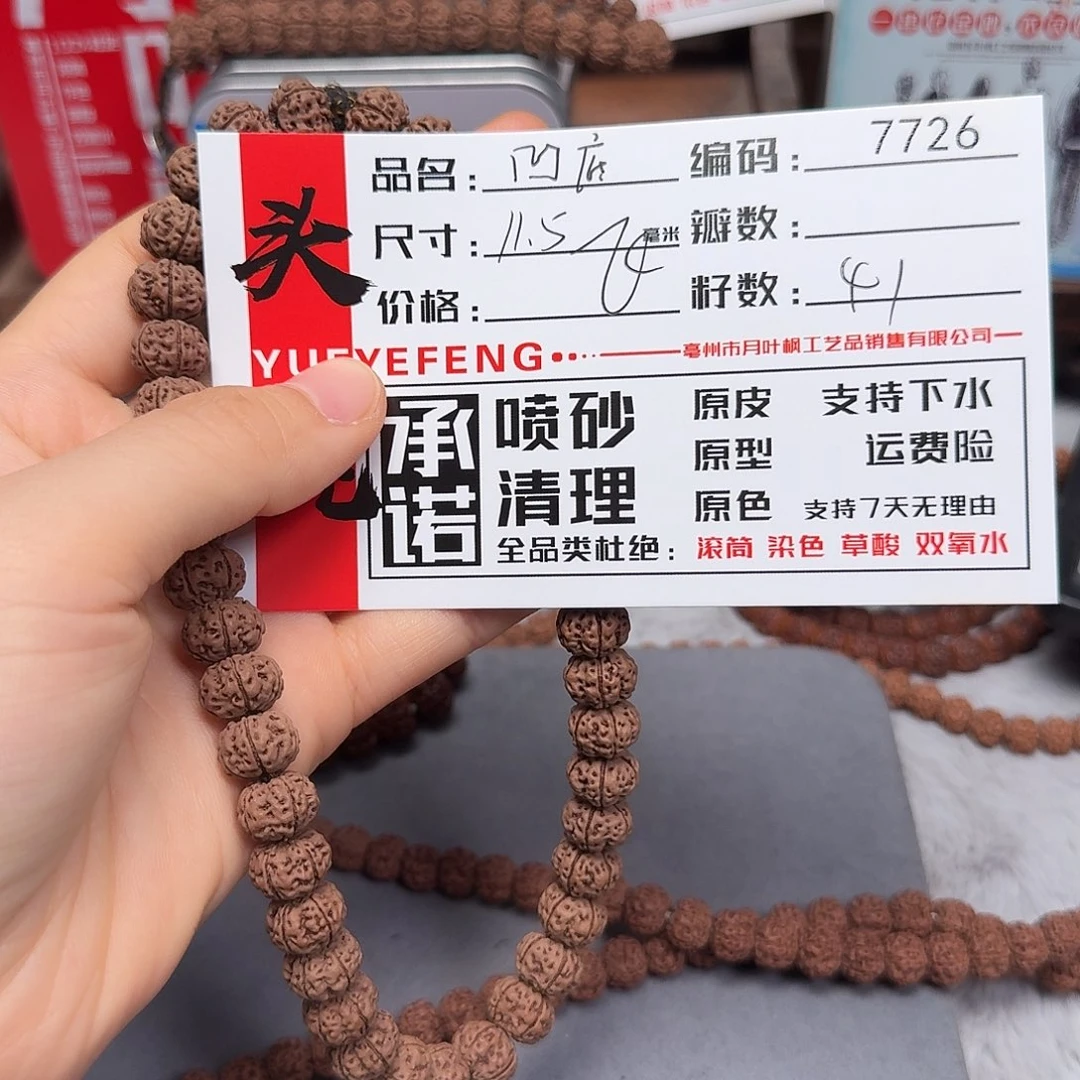 品名: 凹底 编码: 7726
尺寸: 11.5 毫米 瓣数:
价格: 籽数: 41
头
YUEYEFENG
亳州市月叶枫工艺品销售有限公司
承诺
喷砂 原皮 支持下水
清理 原型 运费险
原色 支持7天无理由
全品类杜绝: 滚筒 染色 草酸 双氧水